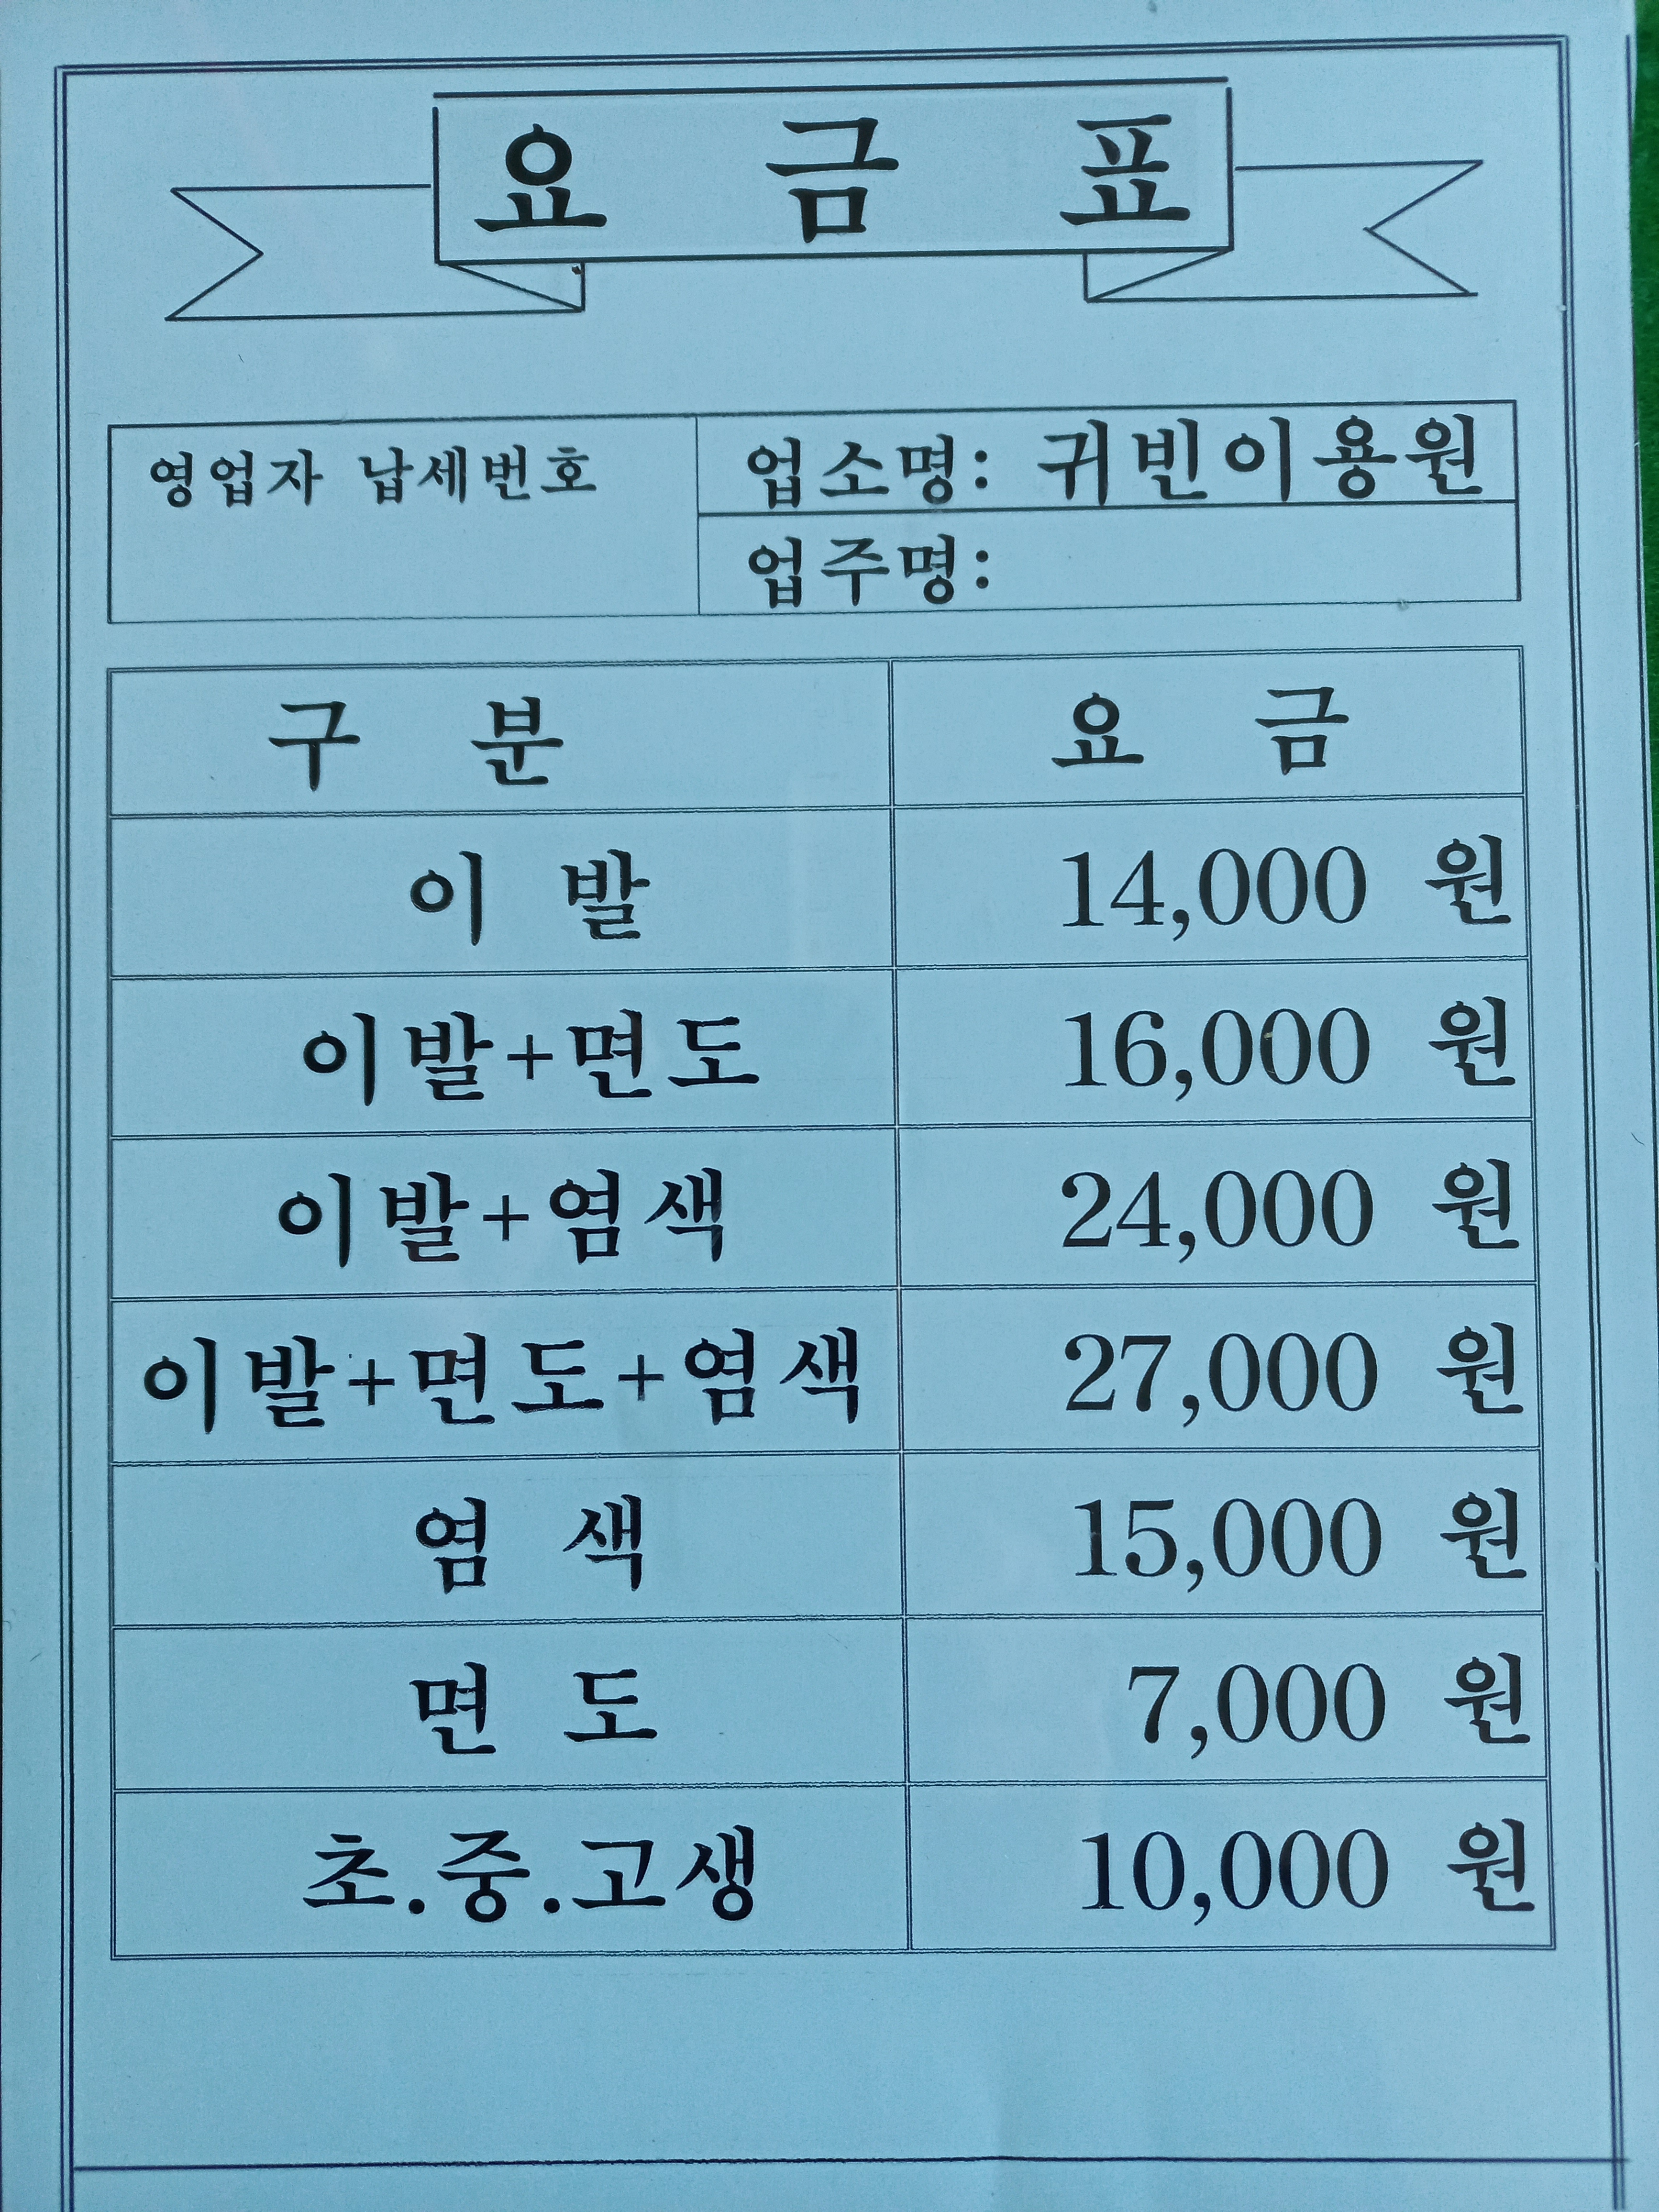 요 금 표
영업자 납세번호
업소명: 귀빈이용원
업주명:
구 분 요 금
이 발 14,000 원
이발+면도 16,000 원
이발+염색 24,000 원
이발+면도+염색 27,000 원
염 색 15,000 원
면 도 7,000 원
초.중.고생 10,000 원